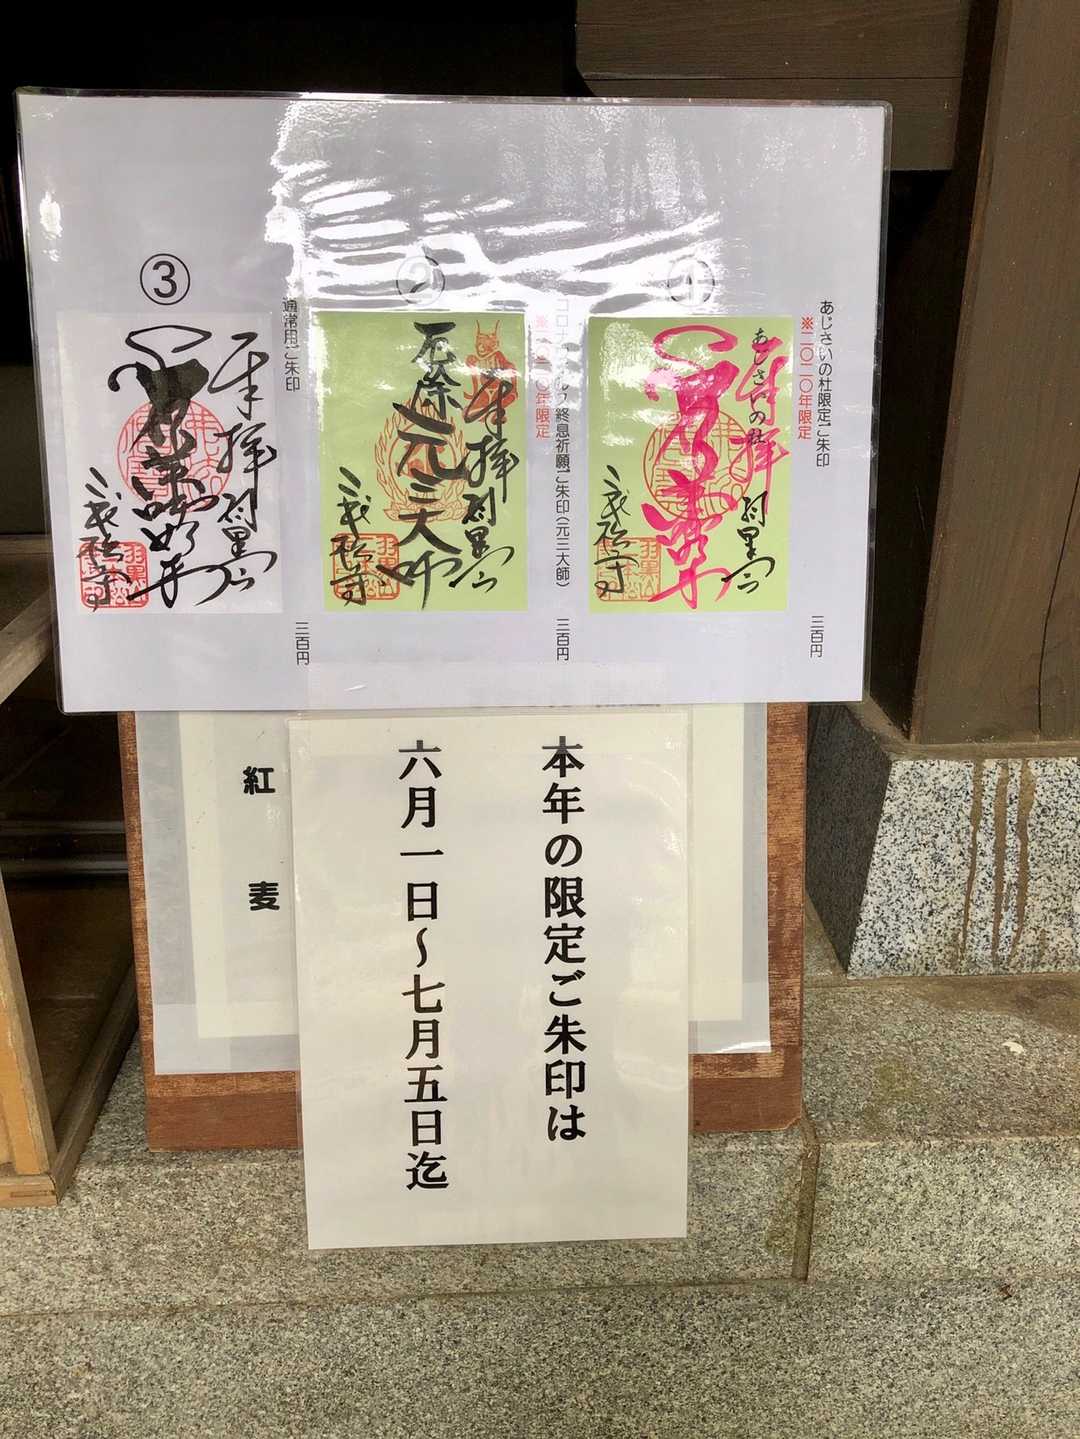 ①
あじさいの杜限定ご朱印
※二〇二〇年限定
三百円
あじさいの杜
奉拝
羽黒山
②
終息祈願ご朱印(元三大師)
年限定
三百円
奉拝
羽黒山
厄除
元三大師
③
通常用ご朱印
三百円
奉拝
羽黒山
本年の限定ご朱印は
六月一日~七月五日迄
紅
麦